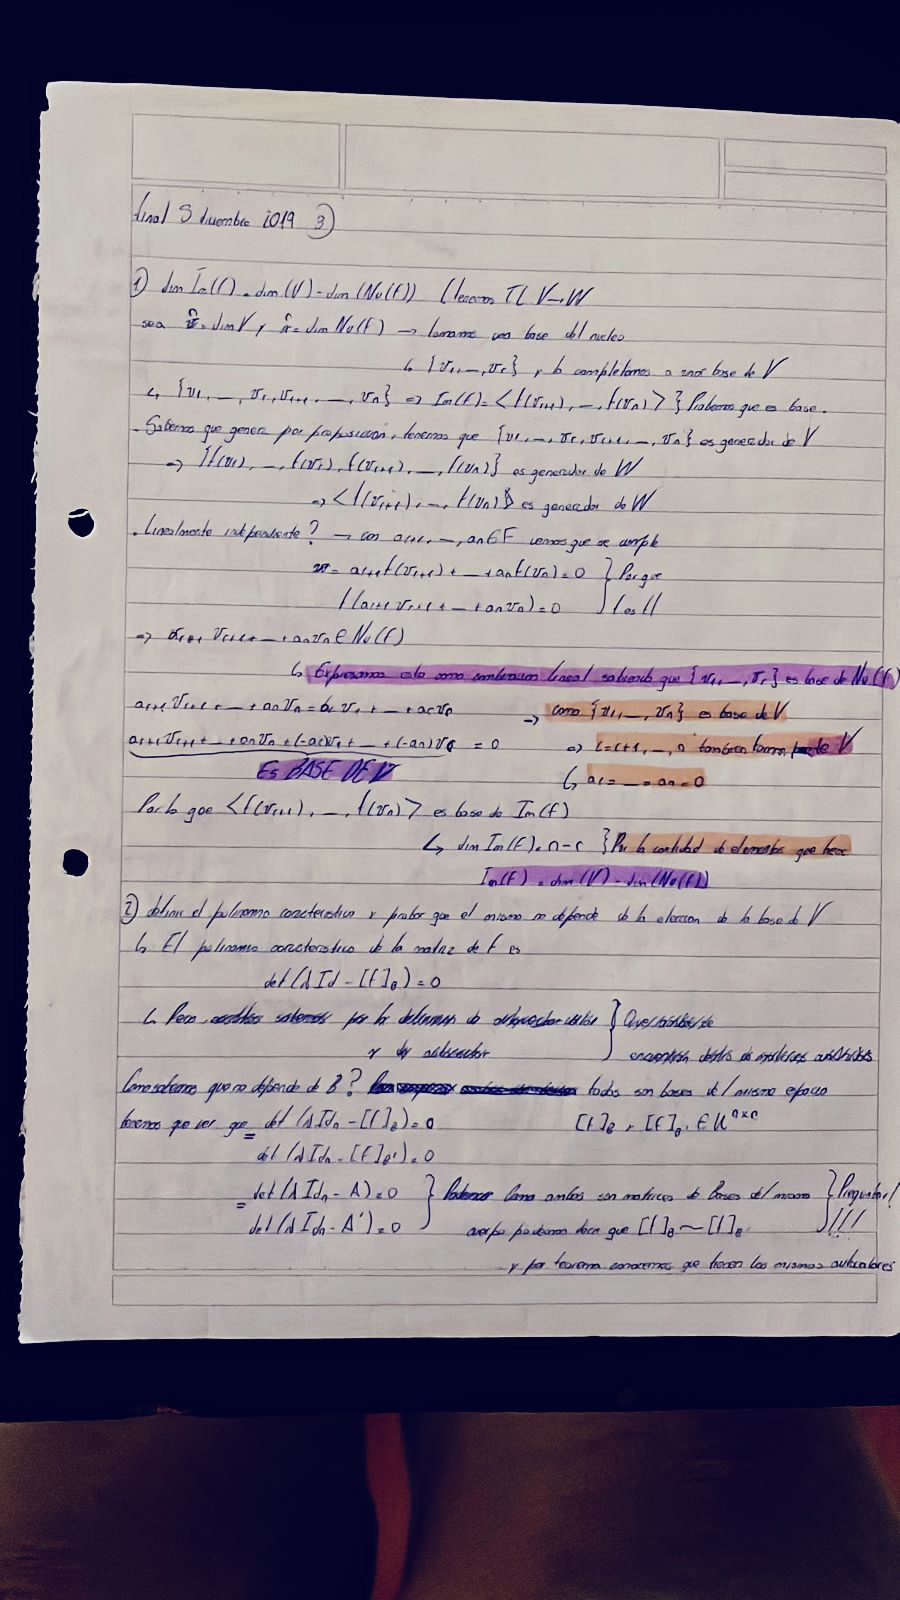 final 5 diciembre 2019 3)
1) dim Im(f) = dim(V) - dim(Nu(f)) (tenemos TL V→W
sea n = dim V y r = dim Nu(f) → tomamos una base del nucleo
↳ {v1, _, vr} y la completamos a una base de V
↳ {v1, _, vr, vr+1, _, vn} ⇒ Im(f) = <f(vr+1), _, f(vn)> } Probemos que es base.
. Sabemos que genera por proposicion, tenemos que {v1, _, vr, vr+1, _, vn} es generador de V
⇒ {f(v1), _, f(vr), f(vr+1), _, f(vn)} es generador de W
⇒ <f(vr+1), _, f(vn)> es generador de W
. Linealmente independiente? → con ar+1, _, an ∈ F vemos que se cumple
v = ar+1 f(vr+1) + _ + an f(vn) = 0 } Porque
f(ar+1 vr+1 + _ + an vn) = 0 f es tl
⇒ ar+1 vr+1 + _ + an vn ∈ Nu(f)
↳ Expresamos esto como combinacion lineal sabiendo que {v1, _, vr} es base de Nu(f)
ar+1 vr+1 + _ + an vn = a1 v1 + _ + ar vr → como {v1, _, vn} es base de V
ar+1 vr+1 + _ + an vn + (-a1)v1 + _ + (-ar)vr = 0 ⇒ i = r+1, _, n tambien forma de V
Es BASE DE V ↳ ai = _ = an = 0
Por lo que <f(vr+1), _, f(vn)> es base de Im(f)
↳ dim Im(f) = n-r } Por la cantidad de elementos que tiene
Im(f) = dim(V) - dim(Nu(f))
2) definir el polinomio caracteristico y probar que el mismo no depende de la eleccion de la base de V
↳ El polinomio caracteristico de la matriz de f es
det(λId - [f]B) = 0
↳ Pero sabemos por la definicion de
y de autovector
Como sabemos que no depende de B? todas son bases del mismo espacio
tenemos que ver que det(λIdn - [f]B) = 0 [f]B y [f]B' ∈ K^nxn
= det(λIdn - [f]B') = 0
det(λIdn - A) = 0 } Podemos Como ambas son matrices de bases del mismo } Preguntar!
= det(λIdn - A') = 0 cuerpo podemos decir que [f]B ~ [f]B' !!!
y por teorema conocemos que tienen los mismos autovalores